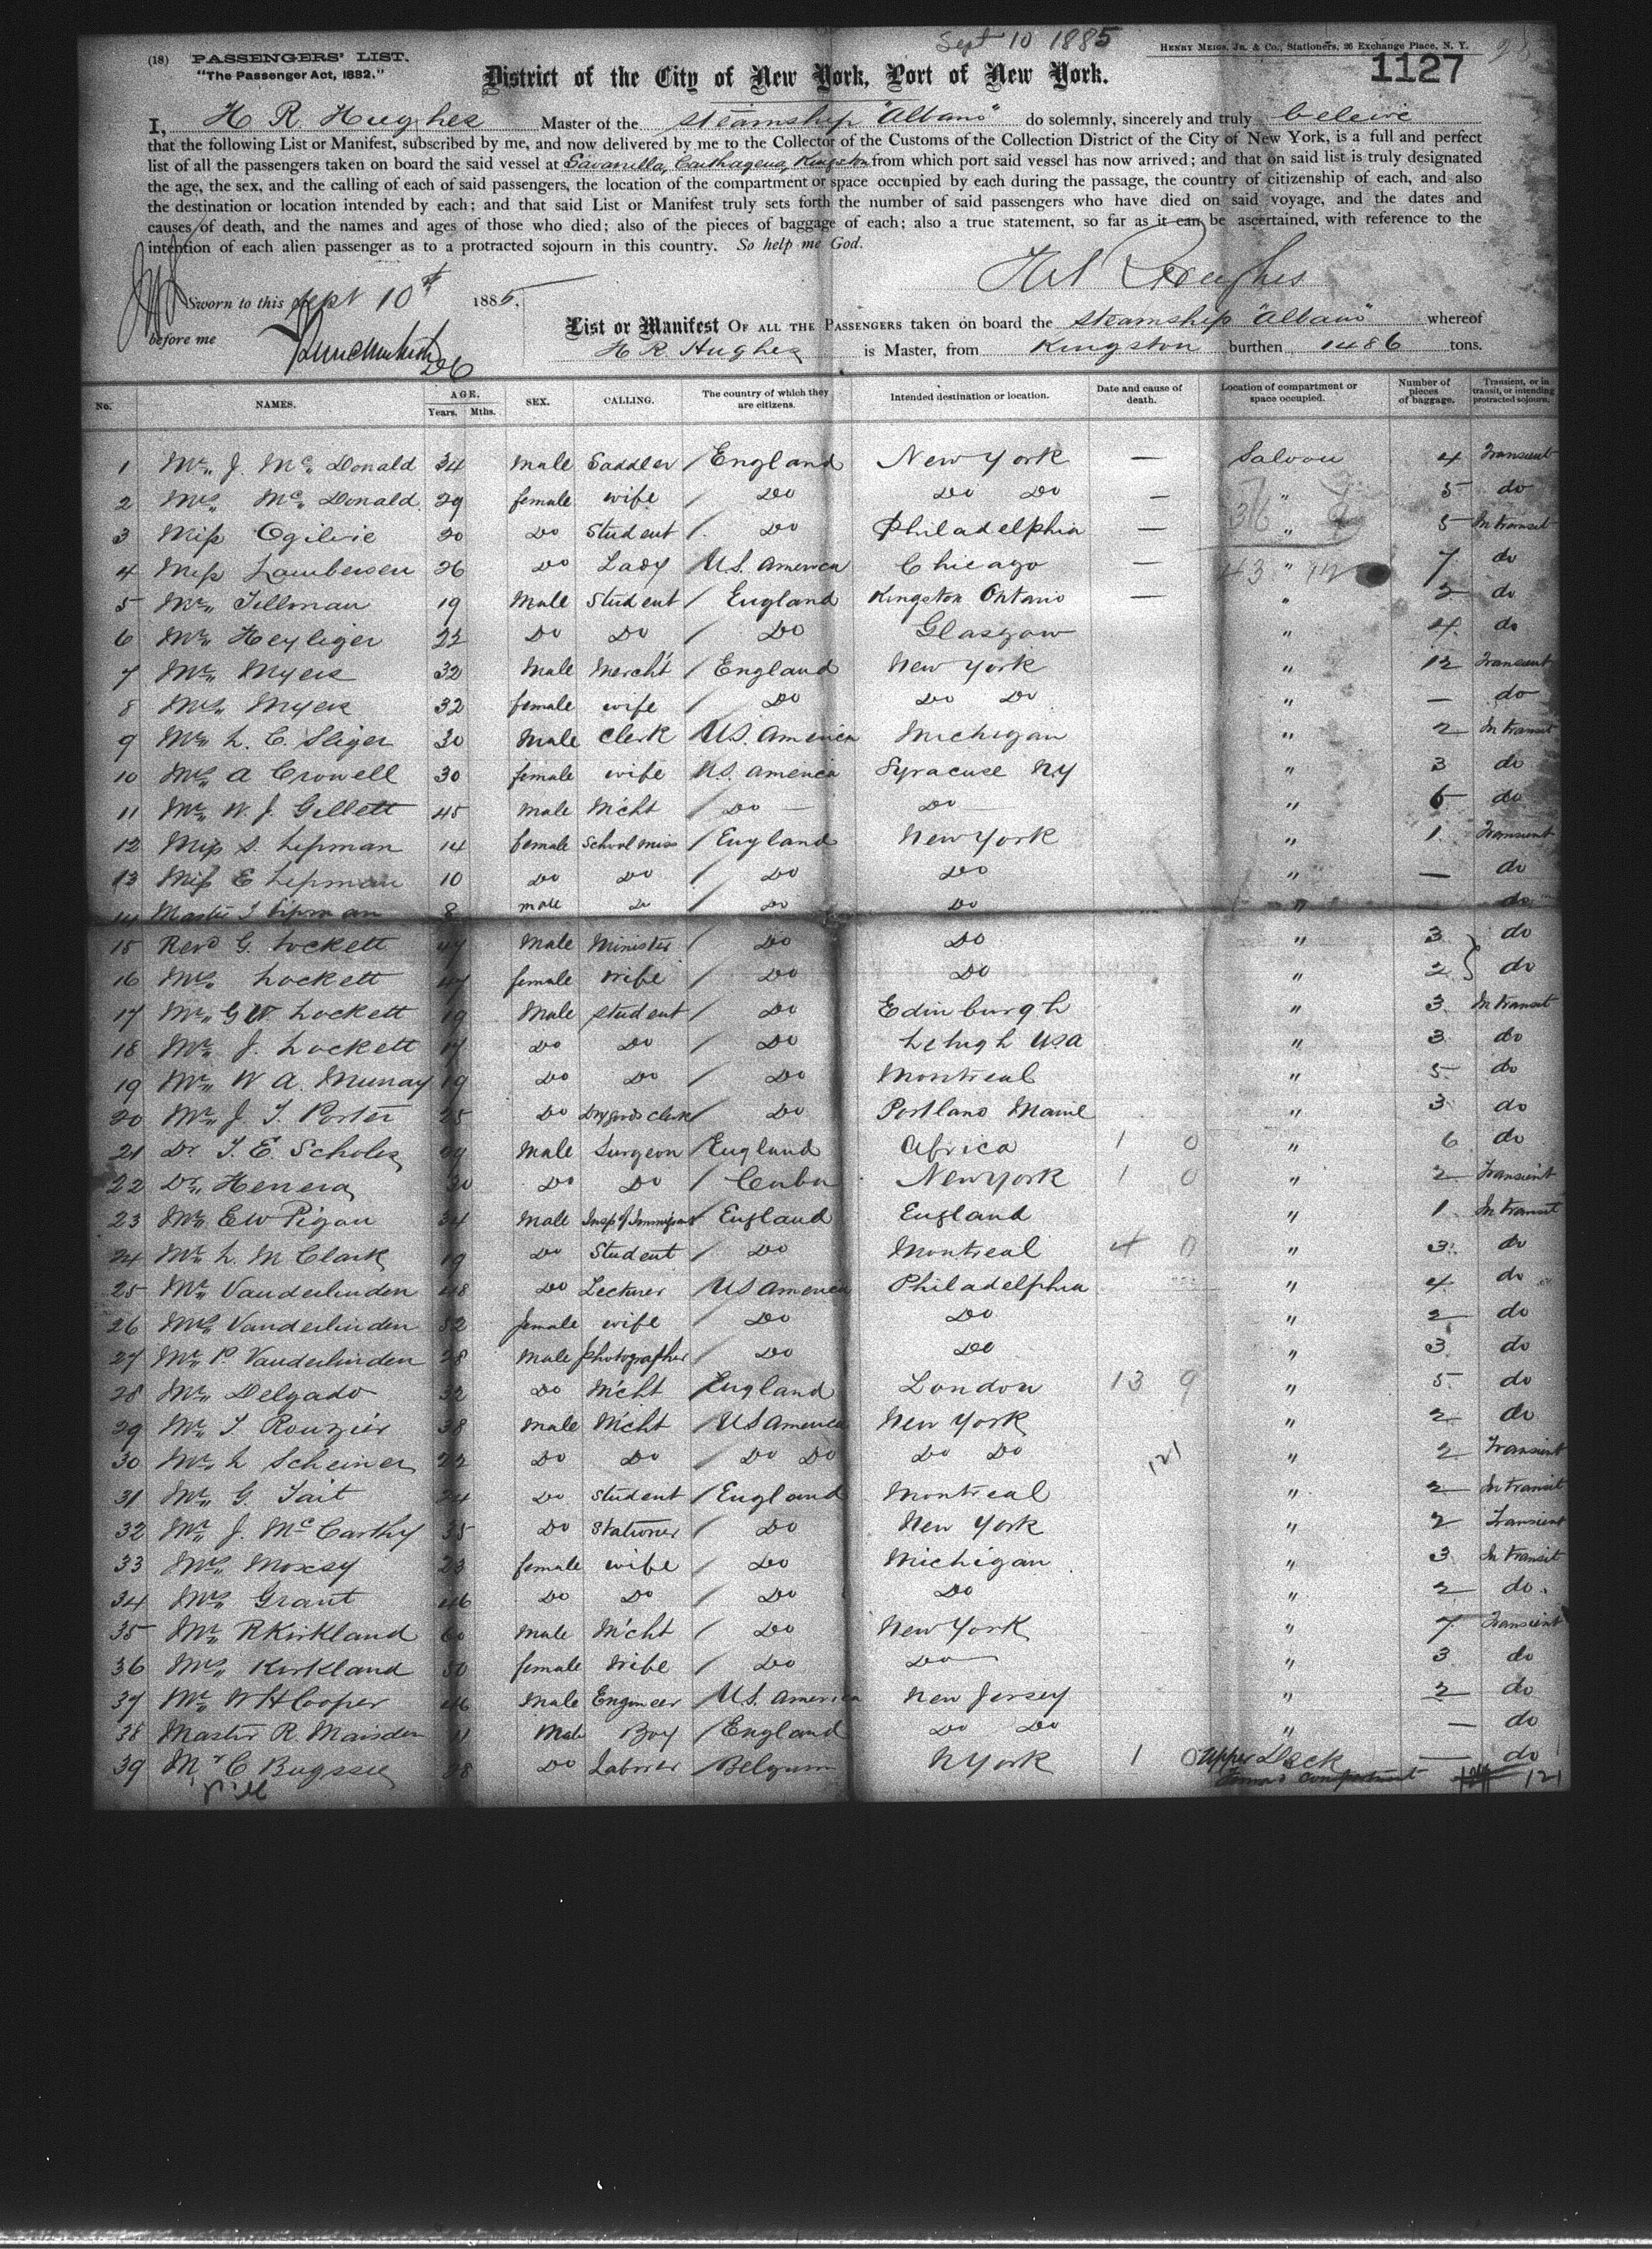 Sept 10 1885
(18) PASSENGERS' LIST.
"The Passenger Act, 1882."
HENRY MEIGS, JR. & CO., Stationers, 26 Exchange Place, N. Y.
1127
District of the City of New York, Port of New York.
I, H R Hughes Master of the steamship "Albano" do solemnly, sincerely and truly beleive
that the following List or Manifest, subscribed by me, and now delivered by me to the Collector of the Customs of the Collection District of the City of New York, is a full and perfect
list of all the passengers taken on board the said vessel at Savanilla, Carthagena, Kingston from which port said vessel has now arrived; and that on said list is truly designated
the age, the sex, and the calling of each of said passengers, the location of the compartment or space occupied by each during the passage, the country of citizenship of each, and also
the destination or location intended by each; and that said List or Manifest truly sets forth the number of said passengers who have died on said voyage, and the dates and
causes of death, and the names and ages of those who died; also of the pieces of baggage of each; also a true statement, so far as it can be ascertained, with reference to the
intention of each alien passenger as to a protracted sojourn in this country. So help me God.
Hughes
Sworn to this Sept 10th 1885.
before me
List or Manifest OF ALL THE PASSENGERS taken on board the steamship "Albano" whereof
H R Hughes is Master, from Kingston burthen 1486 tons.
No. NAMES. AGE. Years. Mths. SEX. CALLING. The country of which they are citizens. Intended destination or location. Date and cause of death. Location of compartment or space occupied. Number of pieces of baggage. Transient, or in transit, or intending protracted sojourn.
1 Mr J. Mc Donald 34 Male Saddler / England New York — Saloon 4 Transient
2 Mrs Mc Donald 29 female wife / Do Do Do — " 5 do
3 Miss Ogilvie 20 Do Student / Do Philadelphia — " 5 In transit
4 Miss 26 Do Lady U.S. America Chicago — " 7 do
5 Mr Tillman 19 Male Student / England Kingston Ontario — " 2 do
6 Mr Heyliger 22 Do Do / Do Glasgow " 4 do
7 Mr Myers 32 Male Mercht / England New York " 12 Transient
8 Mrs Myers 32 female wife / Do Do Do " — do
9 Mr L. C. Sliger 30 Male Clerk U.S. America Michigan " 2 In transit
10 Mrs A Crowell 30 female wife U.S. America Syracuse NY " 3 do
11 Mr W. J. Gillett 45 Male M'cht / Do — Do " 6 do
12 Miss S. Lipman 14 female School miss / England New York " 1 Transient
13 Miss E Lipman 10 Do Do / Do Do " — do
14 Master Lipman 8 male Do / Do Do " do
15 Revd G. Lockett 47 Male Minister / Do Do " 3 do
16 Mrs Lockett 47 female Wife / Do Do " 2 do
17 Mr G W Lockett 19 Male student / Do Edinburgh " 3 In transit
18 Mr J. Lockett 17 Do Do / Do Lehigh USA " 3 do
19 Mr W A. Murray 19 Do Do / Do Montreal " 5 do
20 Mr J. T. Porter 25 Do Dry goods clerk / Do Portland Maine " 3 do
21 Dr T. E. Scholes Male Surgeon / England Africa 1 0 " 6 do
22 Dr Herrera 30 Do Do / Cuba New York 1 0 " 2 Transient
23 Mr E W Pigou 34 Male Insp of Immigrants England England " 1 In transit
24 Mr L. M Clark 19 Do Student / Do Montreal 4 0 " 3 do
25 Mr Vanderlinden 48 Do Lecturer / US America Philadelphia " 4 do
26 Mrs Vanderlinden 52 female wife / Do Do " 2 do
27 Mr P. Vanderlinden 28 Male photographer / Do Do " 3 do
28 Mr Delgado 32 Do M'cht England London 13 9 " 5 do
29 Mr Rouzier 38 Male M'cht / US America New York " 2 do
30 Mr L 22 Do Do / Do Do Do Do 121 " 2 Transient
31 Mr G. Tait 24 Do student / England Montreal " 2 In transit
32 Mr J. McCarthy 35 Do Stationer / Do New York " 2 Transient
33 Mrs Moxsy 23 female wife / Do Michigan " 3 In transit
34 Mrs Grant 46 Do Do / Do Do " 2 do
35 Mr R Kirkland 60 Male M'cht / Do New York " 7 Transient
36 Mrs Kirkland 50 female Wife / Do Do " 3 do
37 Mr W H Cooper 46 Male Engineer / U.S. America New Jersey " 2 do
38 Master R. Marsden 11 Male Boy / England Do Do " — do
39 Mr C 28 Do Laborer / Belgium N York 1 0 Upper Deck — do
121